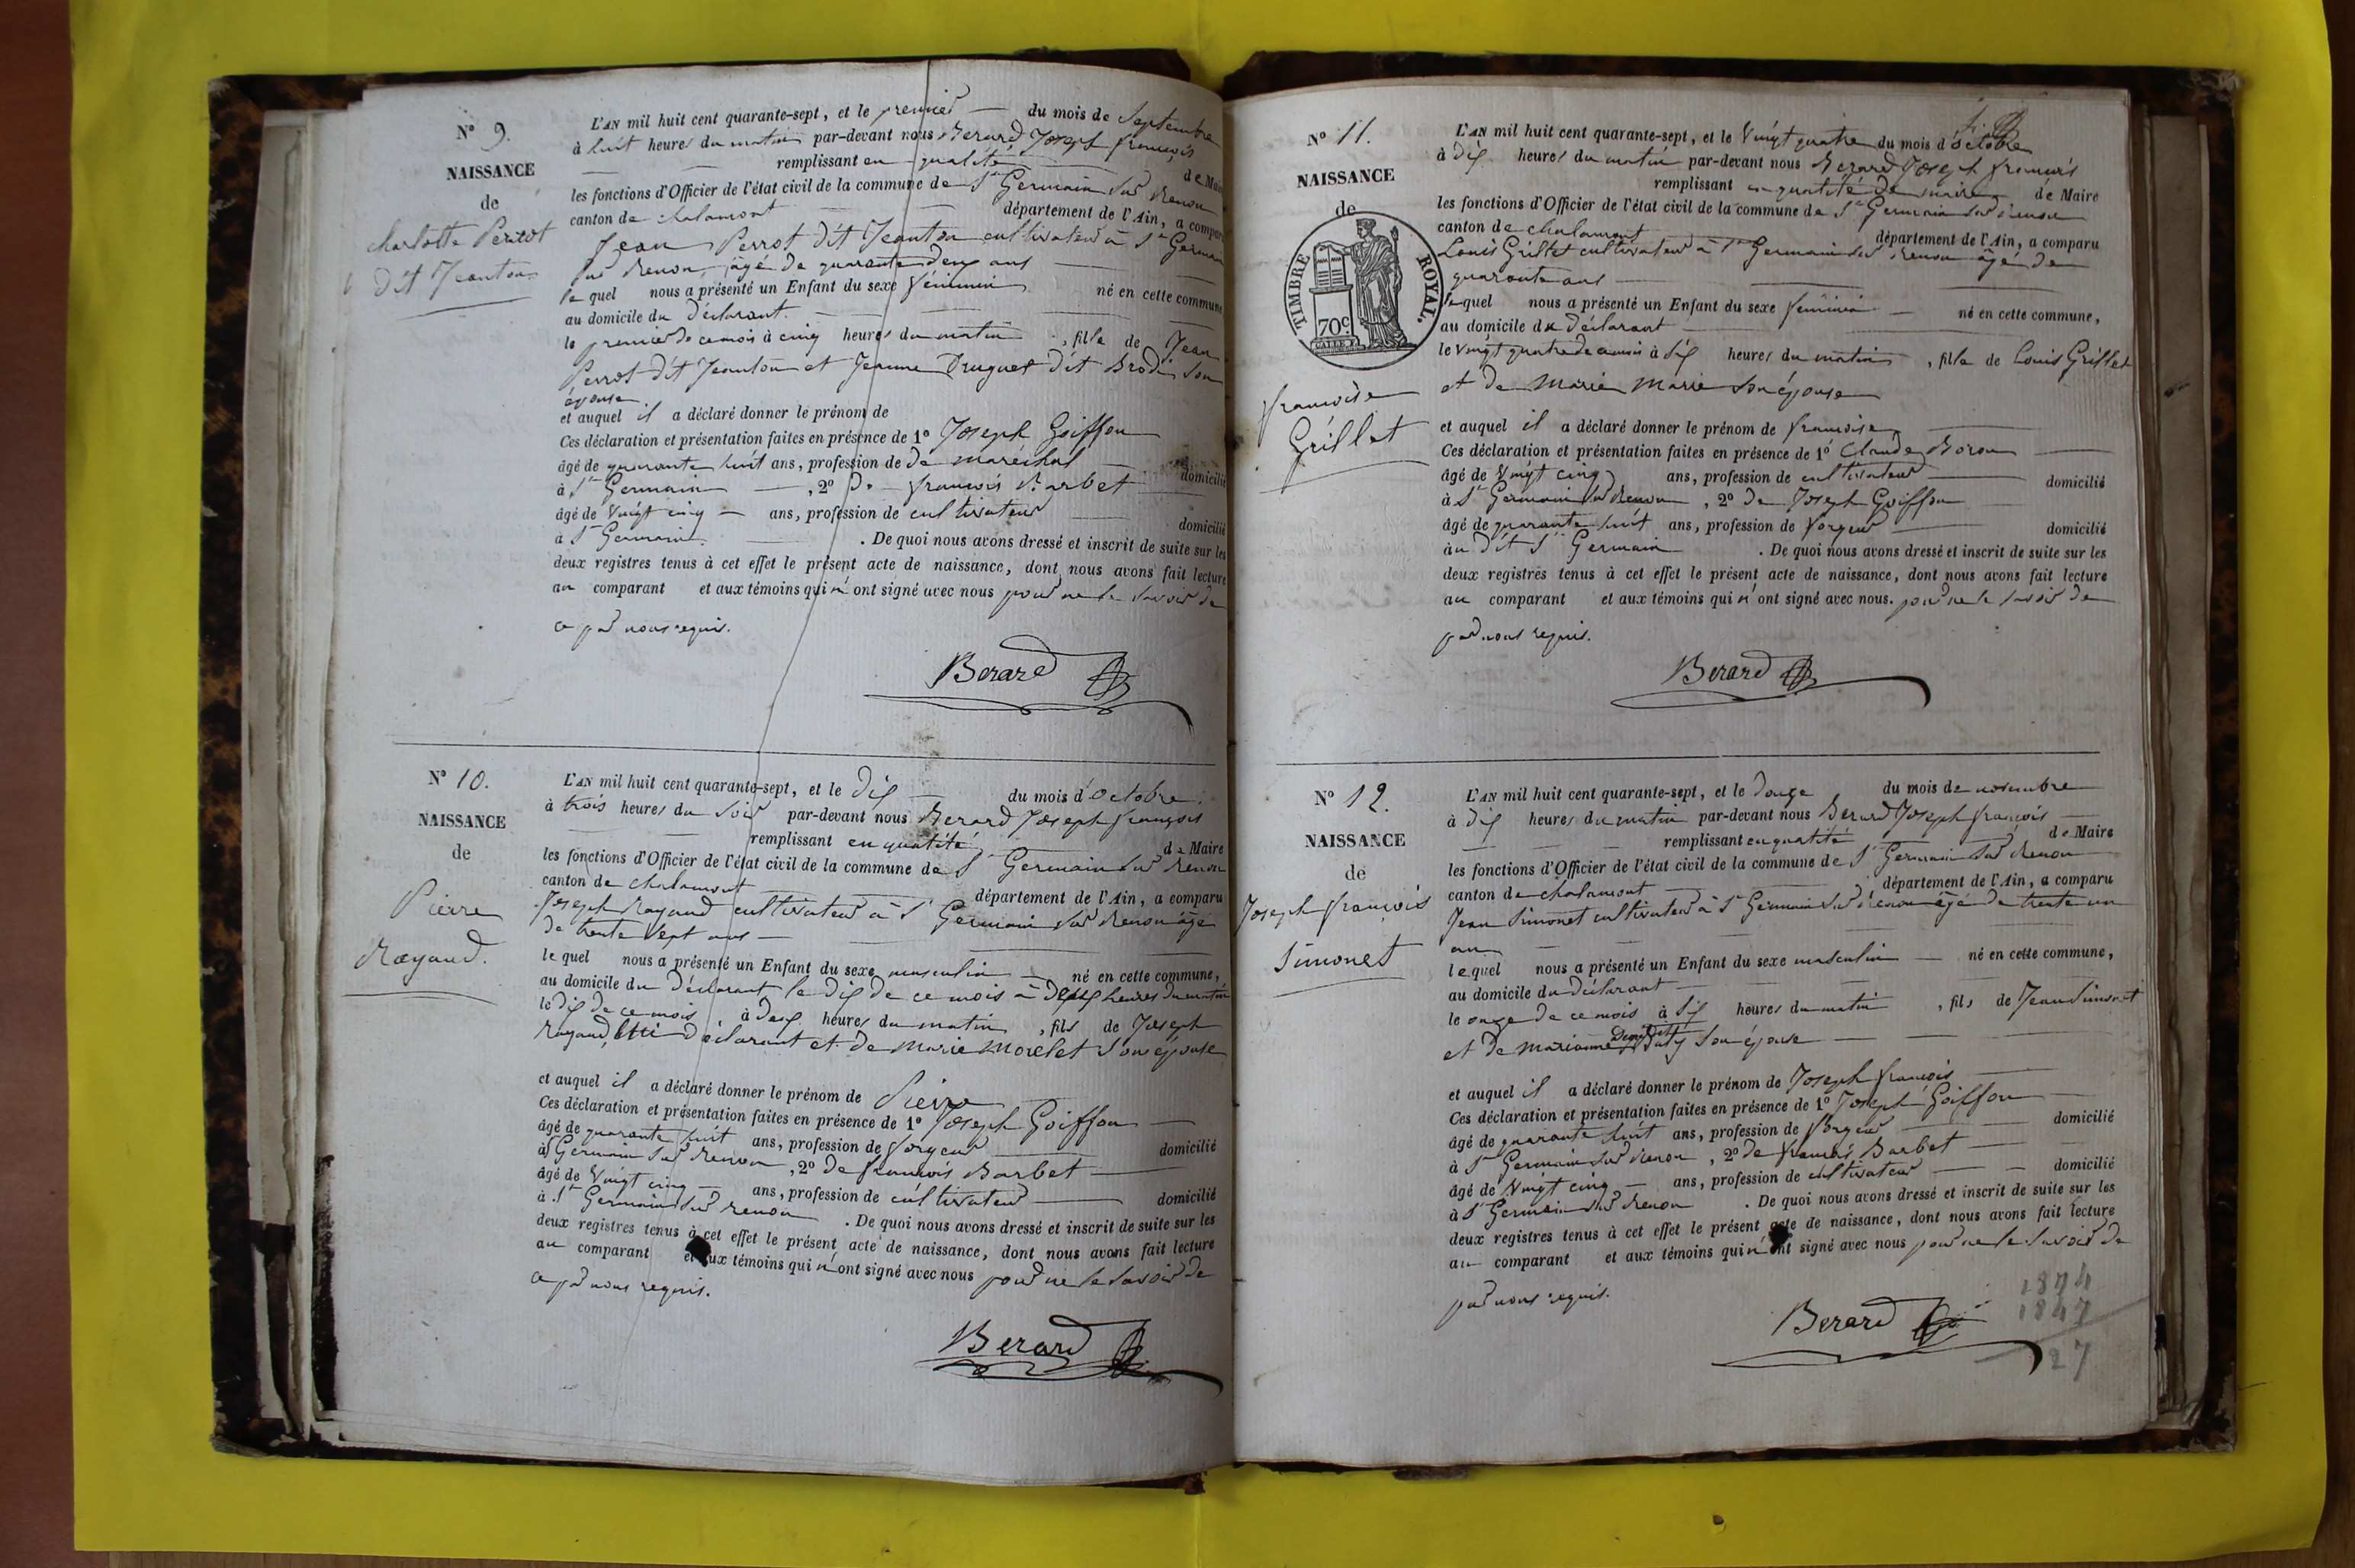 N° 9.
NAISSANCE
de
charlotte Perrot
dit Jeanton
L'AN mil huit cent quarante-sept, et le premier du mois de Septembre
à huit heures du matin par-devant nous Berard Joseph françois
remplissant en qualité de Maire
les fonctions d'Officier de l'état civil de la commune de St Germain sur Renon
canton de chalamont département de l'Ain, a comparu
Jean Perrot dit Jeanton cultivateur à St Germain
sur Renon, âgé de quarante deux ans
lequel nous a présenté un Enfant du sexe féminin né en cette commune
au domicile du déclarant.
le premier de ce mois à cinq heures du matin, fille de Jean
Perrot dit Jeanton et Jeanne Druguet dit Brodi son
épouse
et auquel il a déclaré donner le prénom de
Ces déclaration et présentation faites en présence de 1° Joseph Goiffon
âgé de quarante huit ans, profession de de maréchal domicilié
à St Germain, 2° De françois Barbet
âgé de Vingt cinq ans, profession de cultivateur domicilié
à St Germain. De quoi nous avons dressé et inscrit de suite sur les
deux registres tenus à cet effet le présent acte de naissance, dont nous avons fait lecture
au comparant et aux témoins qui n'ont signé avec nous pour ne le savoir de
ce par nous requis.
Berard
N° 10.
NAISSANCE
de
Pierre
Rayaud.
L'AN mil huit cent quarante-sept, et le dix du mois d'Octobre.
à trois heures du soir par-devant nous Berard Joseph françois
remplissant en qualité de Maire
les fonctions d'Officier de l'état civil de la commune de St Germain sur Renon
canton de chalamont département de l'Ain, a comparu
Joseph Rayaud cultivateur à St Germain sur Renon âgé
de trente sept ans
lequel nous a présenté un Enfant du sexe masculin né en cette commune,
au domicile du déclarant le dix de ce mois à deux heures du matin
le dix de ce mois, à deux heures du matin, fils de Joseph
Rayaud, déclarant et de Marie Morelet son épouse
et auquel il a déclaré donner le prénom de Pierre
Ces déclaration et présentation faites en présence de 1° Joseph Goiffon
âgé de quarante huit ans, profession de forgeur domicilié
à St Germain sur Renon, 2° De françois Barbet
âgé de Vingt cinq ans, profession de cultivateur domicilié
à St Germain sur Renon. De quoi nous avons dressé et inscrit de suite sur les
deux registres tenus à cet effet le présent acte de naissance, dont nous avons fait lecture
au comparant et aux témoins qui n'ont signé avec nous pour ne le savoir de
ce par nous requis.
Berard
N° 11.
NAISSANCE
de
TIMBRE ROYAL.
70c
françoise
Grillet
L'AN mil huit cent quarante-sept, et le Vingt quatre du mois d'octobre
à dix heures du matin par-devant nous Berard Joseph françois
remplissant en qualité de maire de Maire
les fonctions d'Officier de l'état civil de la commune de St Germain sur Renon
canton de chalamont département de l'Ain, a comparu
Louis Grillet cultivateur à St Germain sur Renon âgé de
quarante ans
lequel nous a présenté un Enfant du sexe féminin né en cette commune,
au domicile du déclarant
le Vingt quatre de ce mois à six heures du matin, fille de Louis Grillet
et de Marie Marie son épouse
et auquel il a déclaré donner le prénom de françoise
Ces déclaration et présentation faites en présence de 1° Claude Boron
âgé de Vingt cinq ans, profession de cultivateur domicilié
à St Germain sur Renon, 2° De Joseph Goiffon
âgé de quarante huit ans, profession de forgeur domicilié
au dit St Germain. De quoi nous avons dressé et inscrit de suite sur les
deux registres tenus à cet effet le présent acte de naissance, dont nous avons fait lecture
au comparant et aux témoins qui n'ont signé avec nous. pour ne le savoir de
par nous requis.
Berard
N° 12.
NAISSANCE
de
Joseph françois
Simonet
L'AN mil huit cent quarante-sept, et le douze du mois de novembre
à dix heures du matin par-devant nous Berard Joseph françois
remplissant en qualité de Maire
les fonctions d'Officier de l'état civil de la commune de St Germain sur Renon
canton de chalamont département de l'Ain, a comparu
Jean Simonet cultivateur à St Germain sur Renon âgé de trente un
an
lequel nous a présenté un Enfant du sexe masculin né en cette commune,
au domicile du déclarant
le onze de ce mois à six heures du matin, fils de Jean Simonet
et de Marianne son épouse
et auquel il a déclaré donner le prénom de Joseph françois
Ces déclaration et présentation faites en présence de 1° Joseph Goiffon
âgé de quarante huit ans, profession de forgeur domicilié
à St Germain sur Renon, 2° de françois Barbet
âgé de Vingt cinq ans, profession de cultivateur domicilié
à St Germain sur Renon. De quoi nous avons dressé et inscrit de suite sur les
deux registres tenus à cet effet le présent acte de naissance, dont nous avons fait lecture
au comparant et aux témoins qui n'ont signé avec nous pour ne le savoir de
par nous requis.
Berard
1874
1847
27